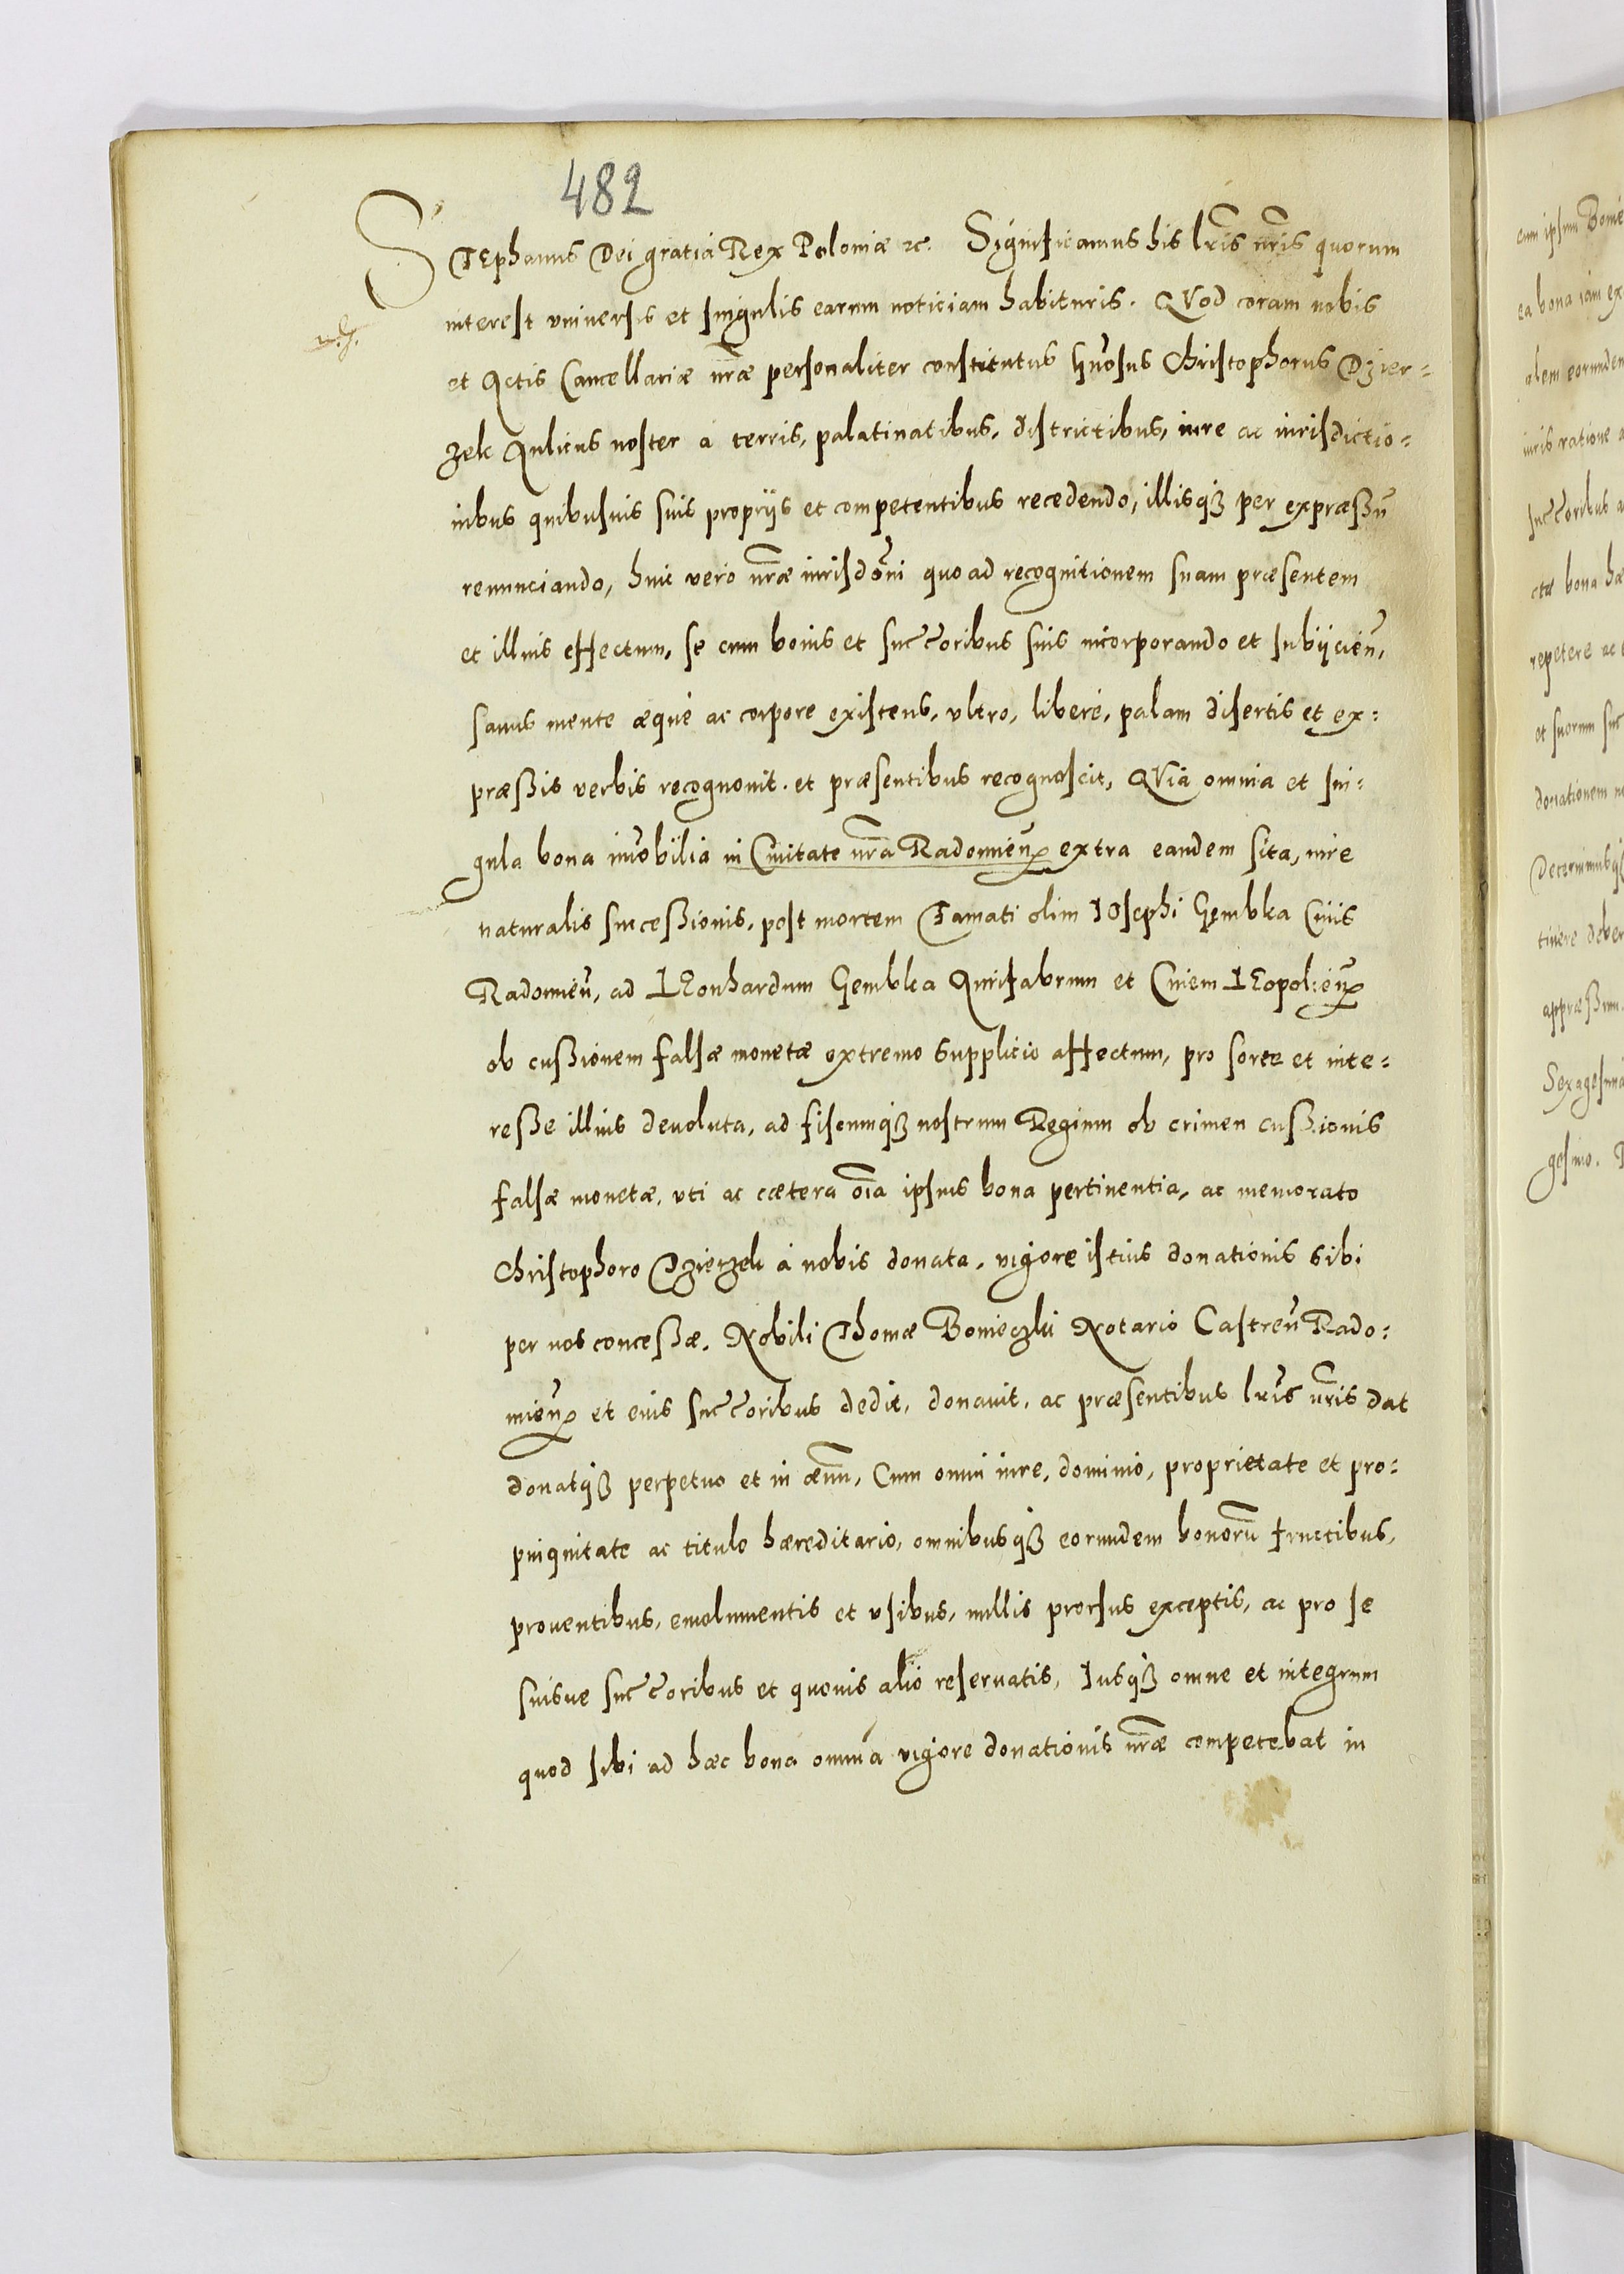 482
STEphanus Dei gratia Rex Poloniæ etc. Significamus his lris nris quorum
interest vniuersis et singulis earum noticiam habituris. QVod coram nobis
et Actis Cancellariæ nræ personaliter constitutus Gnosus Christophorus Dzier=
zek Aulicus noster à terris, palatinatibus, districtibus, iure ac iurisdictio=
nibus quibusuis suis proprijs et competentibus recedendo, illisqꝫ per expræßū
renunciando, huic vero nræ iurisdōni quo ad recognitionem suam præsentem
et illius effectum, se cum bonis et succ̄oribus suis incorporando et subijcień,
sanus mente æquè ac corpore existens, vltro, liberè, palam disertis et ex=
præßis verbis recognouit. et præsentibus recognoscit, QVia omnia et sin=
gula bona im̄obilia in Ciuitate nra Radomień extra eandem sita, iure
naturalis succeßionis, post mortem Famati olim IOsephi Gembka Ciuis
Radomień, ad LEonhardum Gembka Aurifabrum et Ciuem LEopol:ień
ob cußionem falsæ monetæ extremo supplicio affectum, pro sorte et inte=
reße illius deuoluta, ad fiscumqꝫ nostrum Regium ob crimen cußionis
falsæ monetæ, vti ac cætera oīa ipsius bona pertinentia, ac memorato
Christophoro Dzierzek à nobis donata, vigore istius donationis sibi
per nos conceßæ. Nobili Thomæ Bonieczki Notario Castreń Rado=
mień et eius succ̄oribus dedit, donauit, ac præsentibus lris nris dat
donatqꝫ perpetuo et in æuū, Cum omni iure, dominio, proprietate et pro=
pinquitate ac titulo hæreditario, omnibusqꝫ eorundem bonorū fructibus,
prouentibus, emolumentis et vsibus, nullis prorsus exceptis, ac pro se
suisue succ̄oribus et quouis alio reseruatis, Iusqꝫ omne et integrum
quod sibi ad hæc bona omnia vigore donationis nræ competebat in